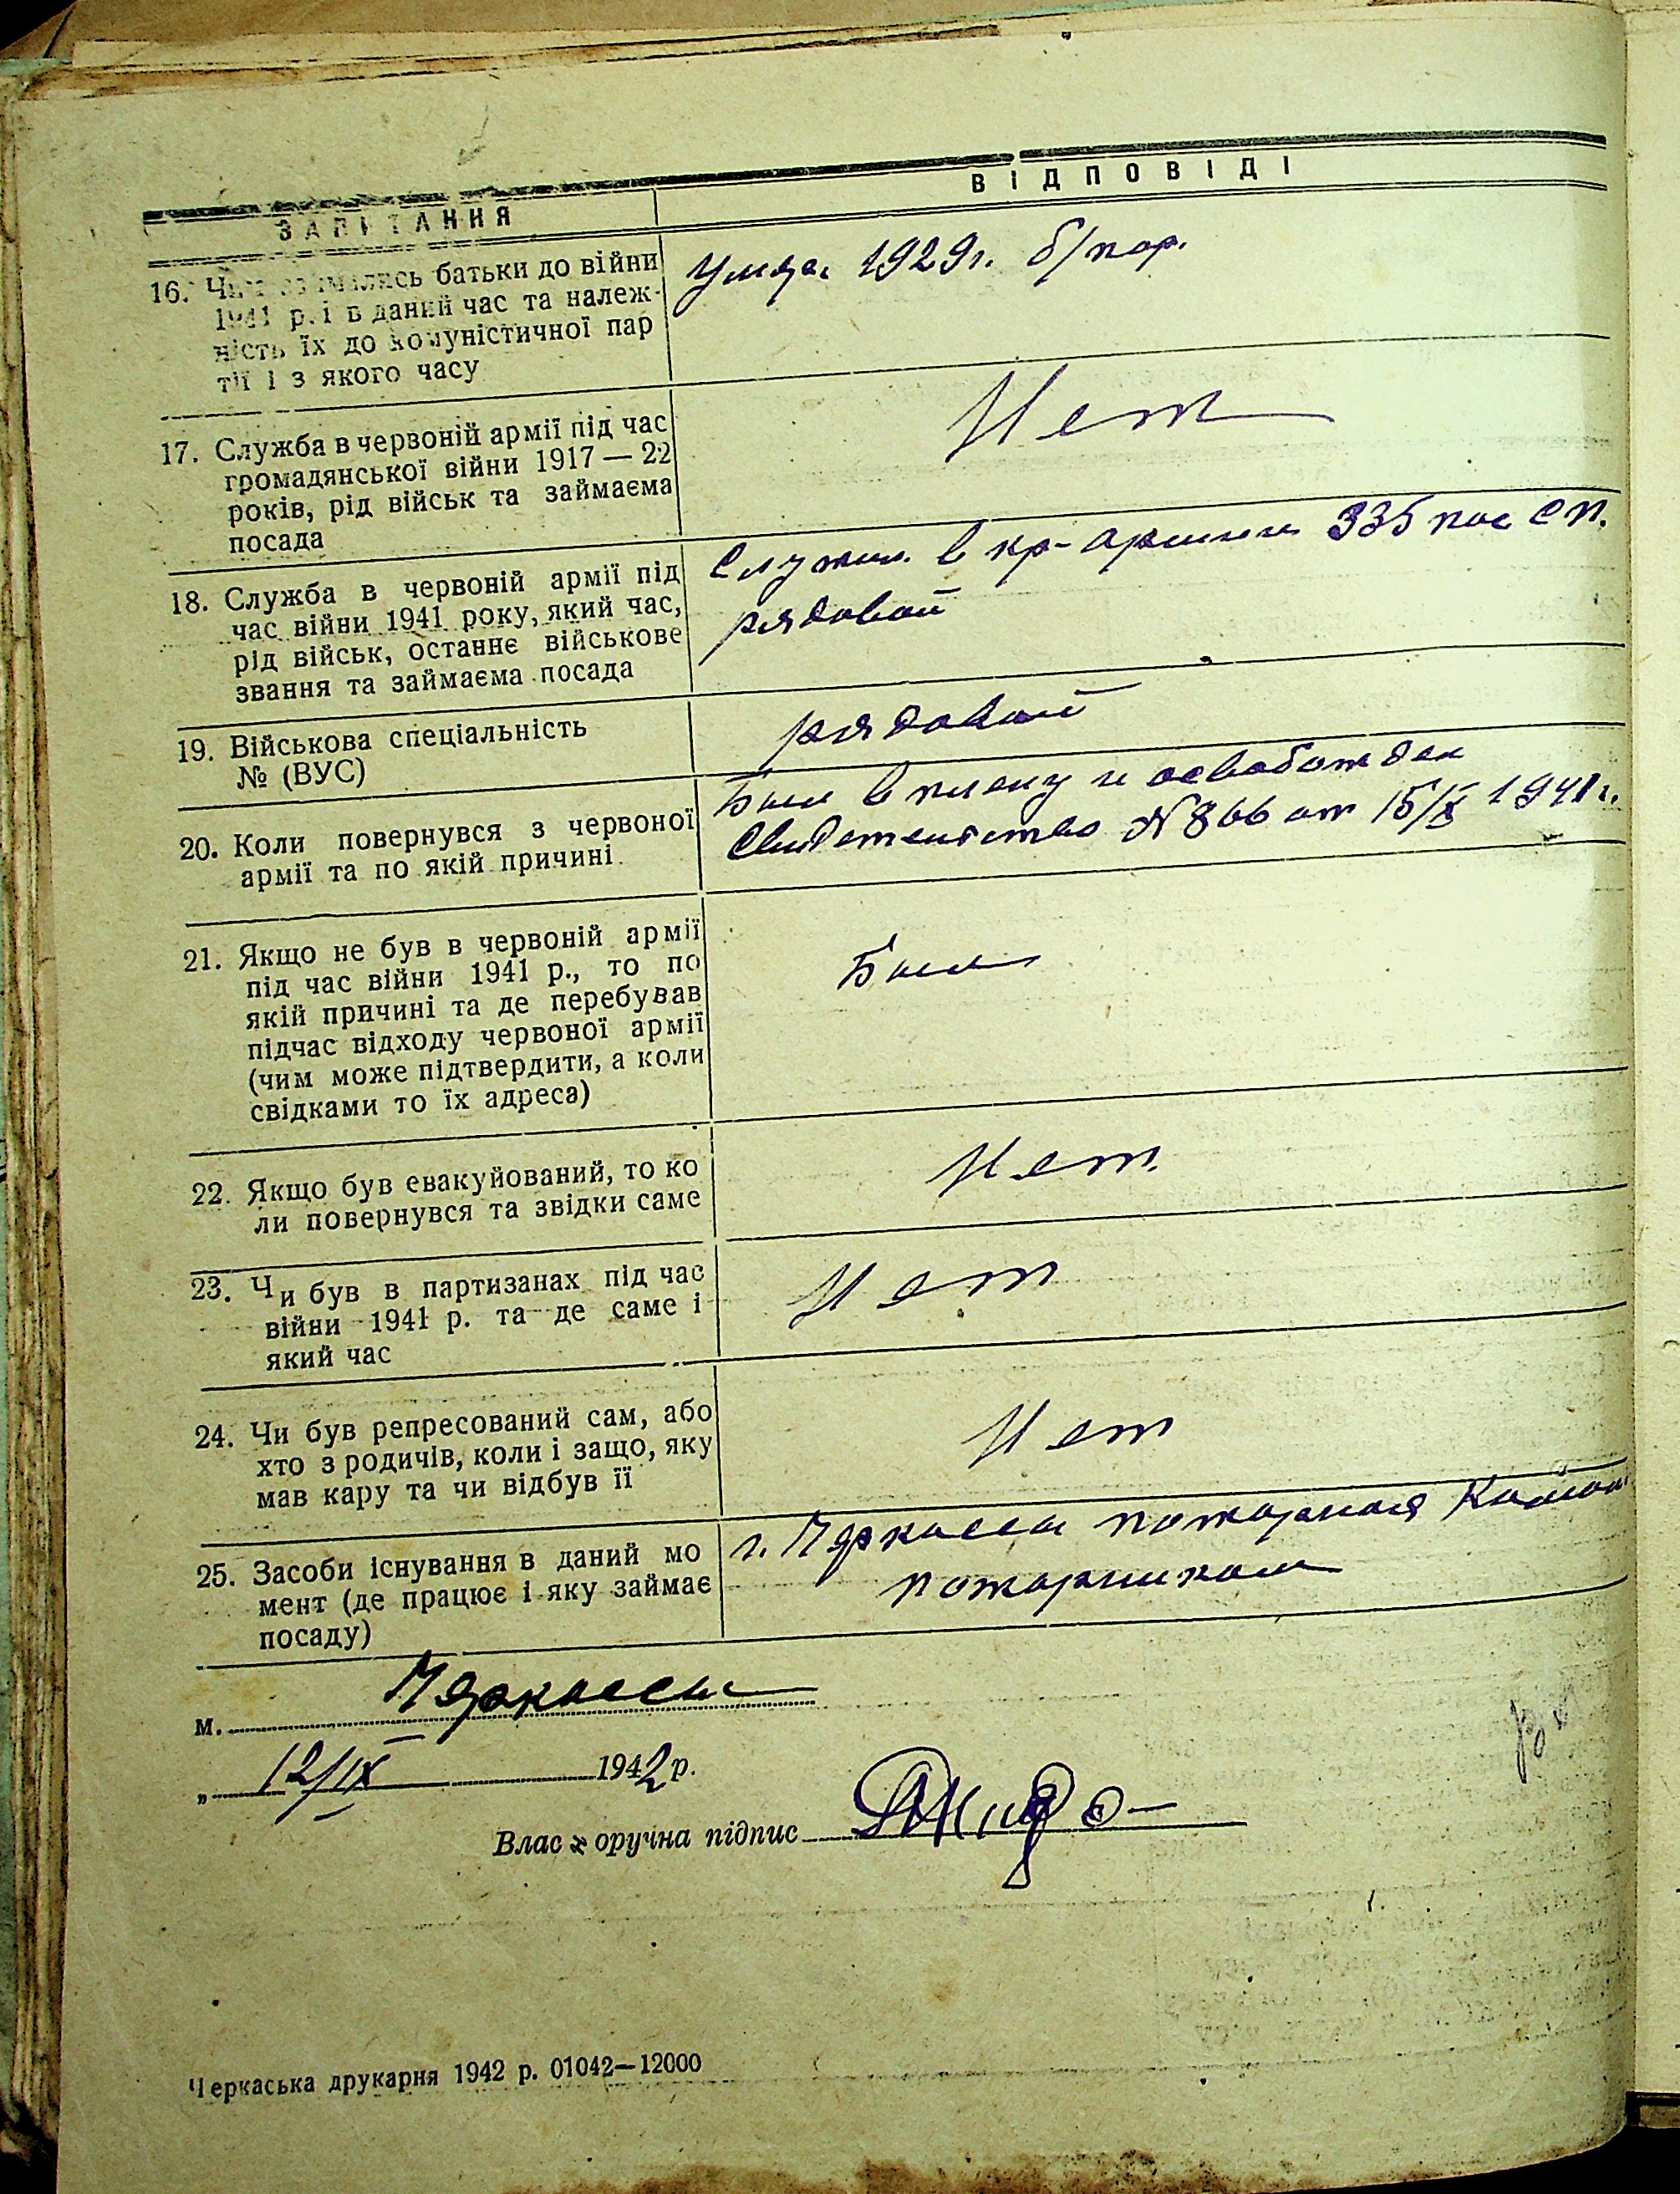 ЗАПИТАННЯ
ВІДПОВІДІ
16. Чим займались батьки до війни
1941 р. і в даний час та належ-
ність їх до комуністичної пар
тії і з якого часу
1929 г. б/пар.
17. Служба в червоній армії під час
громадянської війни 1917 — 22
років, рід військ та займаєма
посада
Нет
18. Служба в червоній армії під
час війни 1941 року, який час,
рід військ, останнє військове
звання та займаєма посада
Служил в кр-армии 335 сп.
рядовой
19. Військова спеціальність
№ (ВУС)
рядовой
20. Коли повернувся з червоної
армії та по якій причині
Был в плену и освобожден
Свидетельство № 866 от 15/X 1941 г.
21. Якщо не був в червоній армії
під час війни 1941 р., то по
якій причині та де перебував
підчас відходу червоної армії
(чим може підтвердити, а коли
свідками то їх адреса)
Был
22. Якщо був евакуйований, то ко
ли повернувся та звідки саме
Нет.
23. Чи був в партизанах під час
війни 1941 р. та де саме і
який час
Нет
24. Чи був репресований сам, або
хто з родичів, коли і защо, яку
мав кару та чи відбув її
Нет
25. Засоби існування в даний мо
мент (де працює і яку займає
посаду)
г. Черкассы пожарная
пожарником
м. Черкассы
„ 12/IX 1942 р.
Влас оручна підпис
Черкаська друкарня 1942 р. 01042—12000